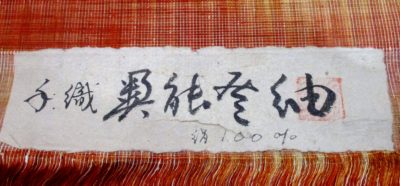 手織 奥能登紬
絹100%